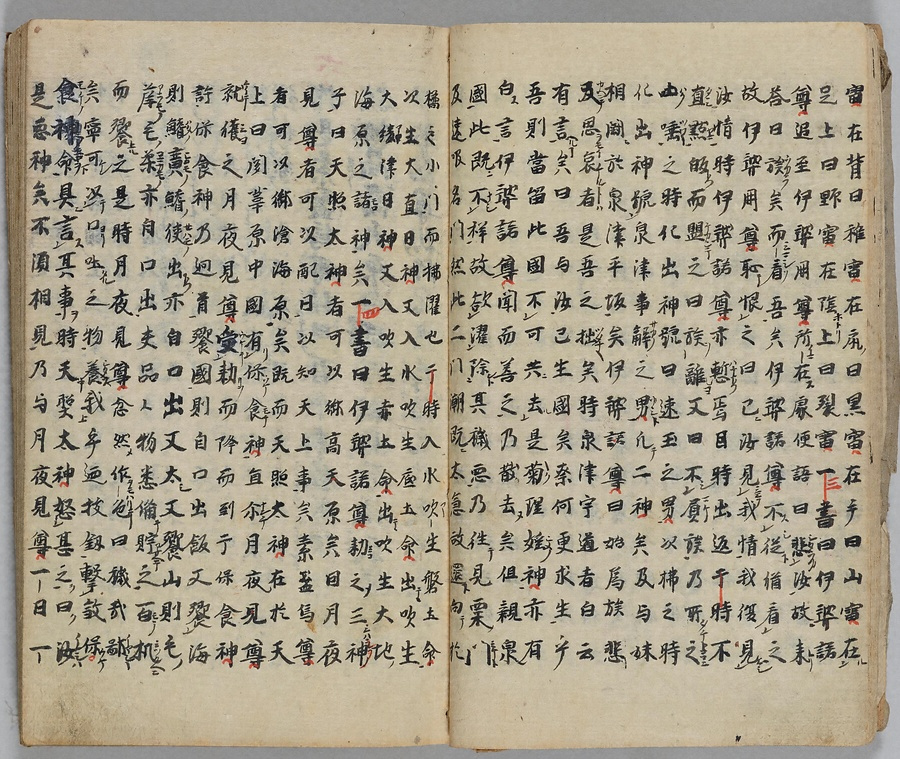 雷在背曰稚雷在尻曰黒雷在手曰山雷在
足上曰野雷在陰上曰裂雷一書曰伊弉諾
尊追至伊弉冊尊所在處便語曰悲汝故来
答曰族矣勿看吾矣伊弉諾尊不従猶看之
故伊弉冊尊恥恨之曰已汝見我情我復見
汝情時伊弉諾尊亦慙焉因時出返于時不
直黙皈而盟之曰族離又曰不屓族乃所
唾之時化出神號曰速玉之男以拂之時
化出神號泉津事解之男凡二神矣及与妹
相闘於泉津平坂矣伊弉諾尊曰始為族悲
及思哀者是吾之拙矣時泉津守道者白云
有言矣曰吾与汝已生國矣奈何更求生乎
吾則當留此國不可共去是菊理媛神亦有
白言伊弉諾尊聞而善之乃散去矣但親泉
國此既不祥故欲濯除其穢悪乃往見粟門
及速吸名門然此二門潮既太急故還向於
橘之小門而拂濯也于時入水吹生磐土命
次生大直日神又入水吹生底土命出吹生
大綾津日神又入吹生赤土命出吹生大地
海原之諸神矣一書曰伊弉諾尊勅之三神
子曰天照太神者可以御高天原矣曰月夜
見尊者可以配日以知天上事矣素盞烏尊
者可以御滄海原矣既而天照大神在於天
上曰聞葦原中國有保食神宜尓月夜見尊
就候之月夜見尊受勅而降而到于保食神
許保食神乃廻首饗國則自口出飯又饗海
則鰭廣鰭狭出亦自口出又太又饗山則毛
麁毛柔亦自口出夫品々物悉備貯之百机
而饗之是時月夜見尊忿然作色曰穢哉鄙
矣寧可以口吐之物養我乎廼抜釼撃保
食神命具言其事時天照太神怒甚之曰汝
是悪神矣不須相見乃与月夜見尊一々日一々